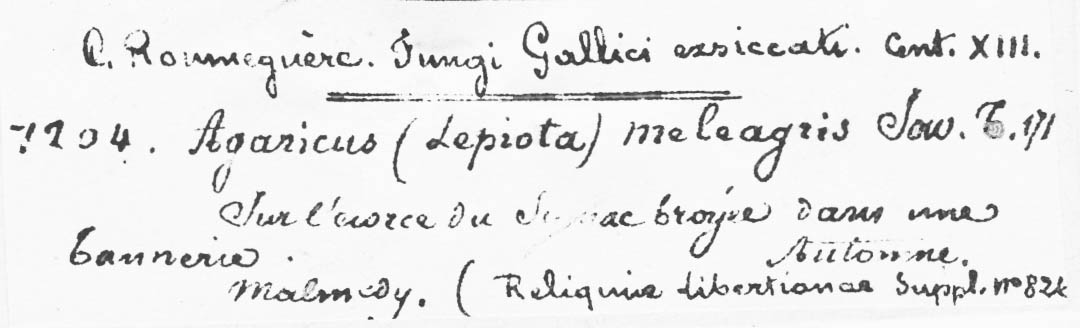 C. Roumeguère. Fungi Gallici exsiccati. Cent. XIII.
1204. Agaricus (Lepiota) meleagris Sow. T. 171
Sur l'écorce du Sumac broyée dans une
tannerie. Automne.
Malmedy. (Reliquiae Libertianae Suppl. no 82